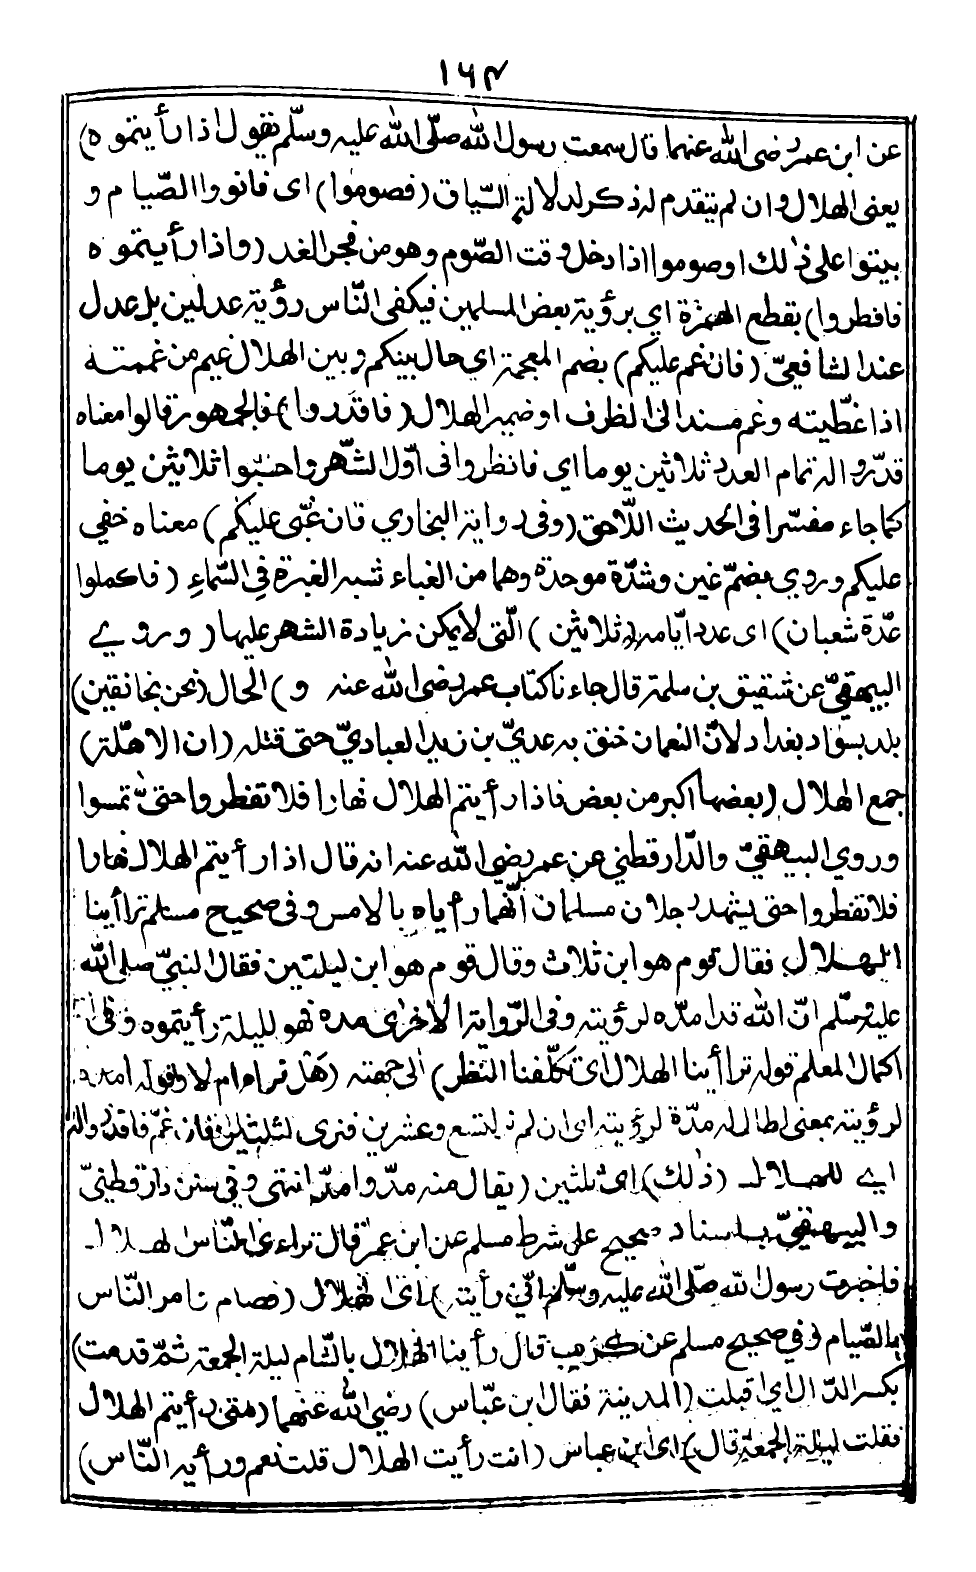 ١٦٣
عن ابن عمر رضى الله عنهما قال سمعت رسول الله صلّى الله عليه وسلّم يقول اذا رأيتموه)
يعنى الهلال وان لم يتقدم له ذكر لدلالة السّياق (فصوموا) اى فانووا الصّيام و
بيتوا على ذٰلك او صوموا اذا دخل وقت الصّوم وهو من فجر الغد (واذا رأيتموه
فافطروا) بقطع الهمزة اي برؤية بعض المسلمين فيكفى النّاس رؤية عدلين بل عدل
عند الشافعيّ (فان غم عليكم) بضم المعجمة اي حال بينكم وبين الهلال غيم من غممته
اذا غطّيته وغم مسندا الى الظرف او ضمير الهلال (فاقدروا) فالجمهور قالوا معناه
قدّروا له تمام العدد ثلاثين يوما اي فانظروا فى اوّل الشّهر واحسبوا ثلاثين يوما
كما جاء مفسّرا فى الحديث اللّاحق (وفى رواية البخاري فان غبّى عليكم) معناه خفي
عليكم وروي بضمّ غين وشدّة موحدة وهما من الغباء شبه الغبرة فِى السّماءِ (فاكملوا
عدّة شعبان) اى عدد ايّامه (ثلاثين) الّتى لا يمكن زيادة الشهر عليها (وروے
البيهقيّ عن شقيق بن سلمة قال جاءنا كتاب عمر رضى الله عنه و) الحال (نحن بخانقين)
بلد بسواد بغداد لانّ النعمان خنق به عديّ بن زيد العباديّ حتى قتله (ان الاهلّة)
جمع الهلال (بعضها اكبر من بعض فاذا رأيتم الهلال نهارا فلا تفطروا حتىّ تمسوا
وروي البيهقيّ والدّارقطني عن عمر رضي الله عنه انه قال اذا رأيتم الهلال نهارا
فلا تفطروا حتى يشهد رجلان مسلمان انّهما رأياه بالامس وفى صحيح مسلم تراأينا
الهلال فقال قوم هو ابن ثلاث وقال قوم هو ابن ليلتين فقال النبيّ صلى الله
عليه وسلّم انّ الله قد امدّه لرؤيته وفى الرّواية الاخرٰى مده فهو لليلة رأيتموه وفى
اكمال المعلم قوله تراأينا الهلال اى تكلّفنا النّظر) الى جهته (هَل نراه ام لا وقوله امده
لرؤيته بمعنى اطال له مدّة لرؤيته اى ان لم ير لتسع وعشرين فنرى لثلثين فان غمّ فاقدروا له
اے للهلال (ذٰلك) اى ثلثين (يقال منه مدّ وامدّ انتهى وفي سنن دارقطنيّ
والبيهقيّ باسناد صحيح على شرط مسلم عن ابن عمر قال تراءى النّاس الهلال
فاخبرت رسول الله صلّى الله عليه وسلّم انّي رأيته) اى الهلال (فصام وامر النّاس
بالصّيام وفي صحيح مسلم عن كريب قال رأينا الهلال بالشّام ليلة الجمعة ثمّ قدمت)
بكسر الدّال اى اقبلت (المدينة فقال ابن عبّاس) رضي الله عنهما (متى رأيتم الهلال
فقلت ليلة الجمعة قال) اى ابن عباس (انت رأيت الهلال قلت نعم ورأيه النّاس)